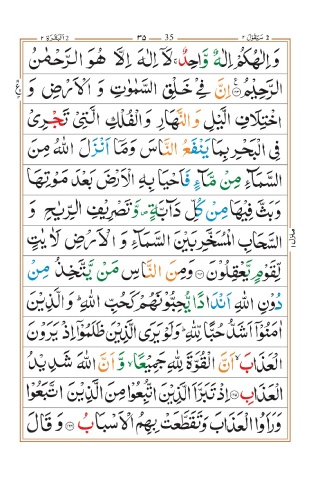 البقرة ٢ ٣٥ 35 سيقول ٢
وَاِلٰهُكُمْ اِلٰهٌ وَّاحِدٌ ۚ لَآ اِلٰهَ اِلَّا هُوَ الرَّحْمٰنُ
الرَّحِيْمُ ۟ اِنَّ فِيْ خَلْقِ السَّمٰوٰتِ وَ الْاَرْضِ وَ
اخْتِلَافِ الَّيْلِ وَ النَّهَارِ وَ الْفُلْكِ الَّتِيْ تَجْرِيْ
فِي الْبَحْرِ بِمَا يَنْفَعُ النَّاسَ وَ مَاۤ اَنْزَلَ اللّٰهُ مِنَ
السَّمَآءِ مِنْ مَّآءٍ فَاَحْيَا بِهِ الْاَرْضَ بَعْدَ مَوْتِهَا
وَ بَثَّ فِيْهَا مِنْ كُلِّ دَآبَّةٍ ۪ وَّ تَصْرِيْفِ الرِّيٰحِ وَ
السَّحَابِ الْمُسَخَّرِ بَيْنَ السَّمَآءِ وَ الْاَرْضِ لَاٰيٰتٍ
لِّقَوْمٍ يَّعْقِلُوْنَ ۟ وَ مِنَ النَّاسِ مَنْ يَّتَّخِذُ مِنْ
دُوْنِ اللّٰهِ اَنْدَادًا يُّحِبُّوْنَهُمْ كَحُبِّ اللّٰهِ ؕ وَ الَّذِيْنَ
اٰمَنُوْۤا اَشَدُّ حُبًّا لِّلّٰهِ ؕ وَ لَوْ يَرَى الَّذِيْنَ ظَلَمُوْۤا اِذْ يَرَوْنَ
الْعَذَابَ ۙ اَنَّ الْقُوَّةَ لِلّٰهِ جَمِيْعًا ۙ وَّ اَنَّ اللّٰهَ شَدِيْدُ
الْعَذَابِ ۟ اِذْ تَبَرَّاَ الَّذِيْنَ اتُّبِعُوْا مِنَ الَّذِيْنَ اتَّبَعُوْا
وَ رَاَوُا الْعَذَابَ وَ تَقَطَّعَتْ بِهِمُ الْاَسْبَابُ ۟ وَ قَالَ